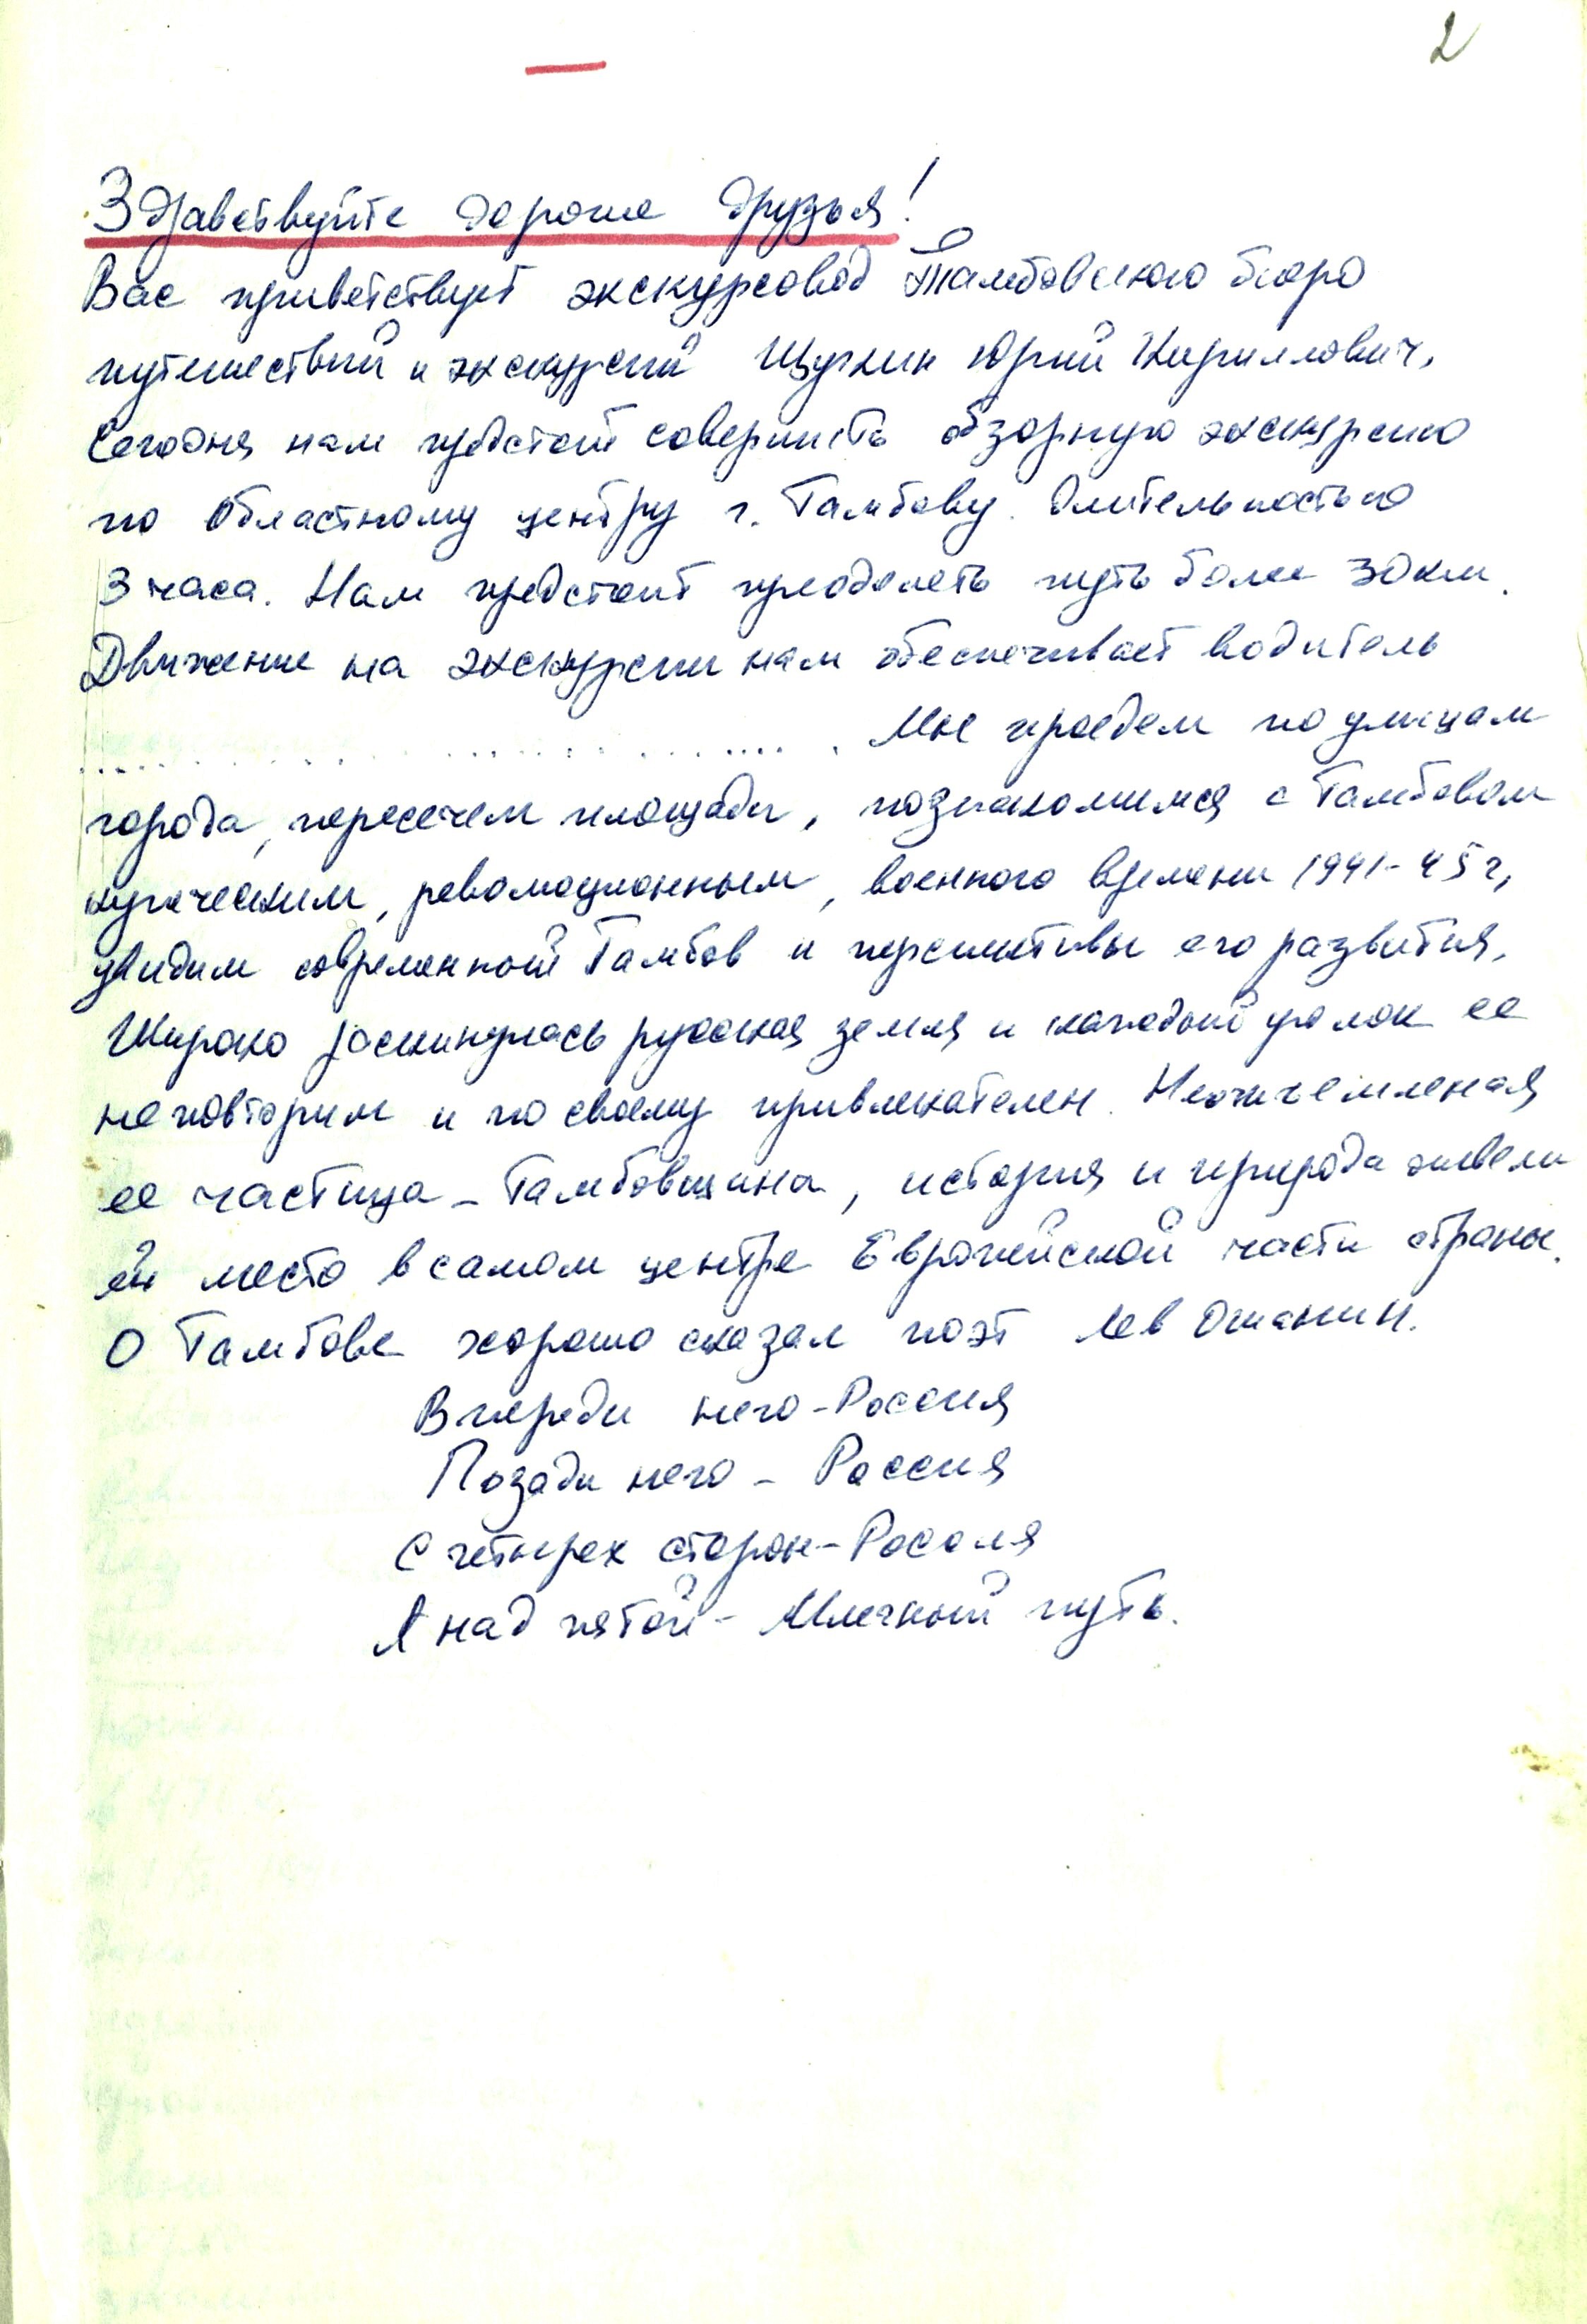 2
Здравствуйте дорогие друзья!
Вас приветствует экскурсовод Тамбовского бюро
путешествий и экскурсий Щукин Юрий Кириллович,
Сегодня нам предстоит совершить обзорную экскурсию
по областному центру г. Тамбову. Длительностью
3 часа. Нам предстоит преодолеть путь более 30 км.
Движение на экскурсии нам обеспечивает водитель
.............................. Мы проедем по улицам
города, пересечем площади, познакомимся с Тамбовом
купеческим, революционным, военного времени 1941-45 г,
увидим современный Тамбов и перспективы его развития,
Широко раскинулась русская земля и каждый уголок ее
неповторим и по своему привлекателен. Неотъемленая
ее частица - Тамбовщина, история и природа отвели
ей место в самом центре Европейской части страны.
О Тамбове хорошо сказал поэт Лев Ошанин.
Впереди него - Россия
Позади него - Россия
С четырех сторон - Россия
А над пятой - Млечный путь.